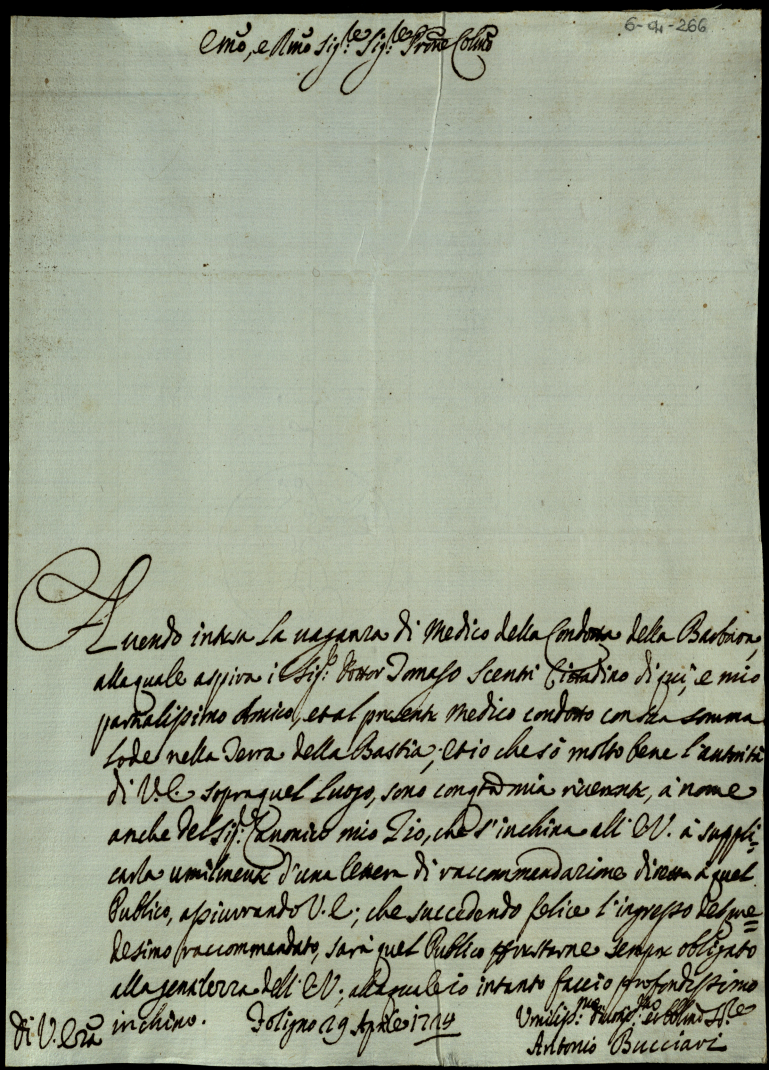 6-4-266
Emo, e Rmo Sig.re Sig.re Prone Colmo
Auendo intesa la uaganza di Medico della Condotta della Barbara,
alla quale aspira i Sig.r Dottor Tomaso Scenti Cittadino di qui, e mio
parzialissimo Amico, et al presente Medico condotto con sua somma
lode nella Terra della Bastia; et io che sò molto bene l'autorità
di V.E. sopra quel luogo, sono con questa mia riverente, à nome
anche del Sig.r Canonico mio Zio, che s'inchina all'E.V. à suppli=
carla umilmente d'una lettera di raccommandazione diretta à quel
Publico, assicurando V.E.; che succedendo felice l'ingresso del me=
desimo raccommandato, sarà quel Publico per restarne sempre obligato
alla generosità dell'E.V.; alla quale io intanto faccio profondissimo
inchino. Foligno 29 Aprile 1724
Di V. Emza
Umiliss.mo Deuotis.mo et Obblmo Sre
Antonio Bucciari